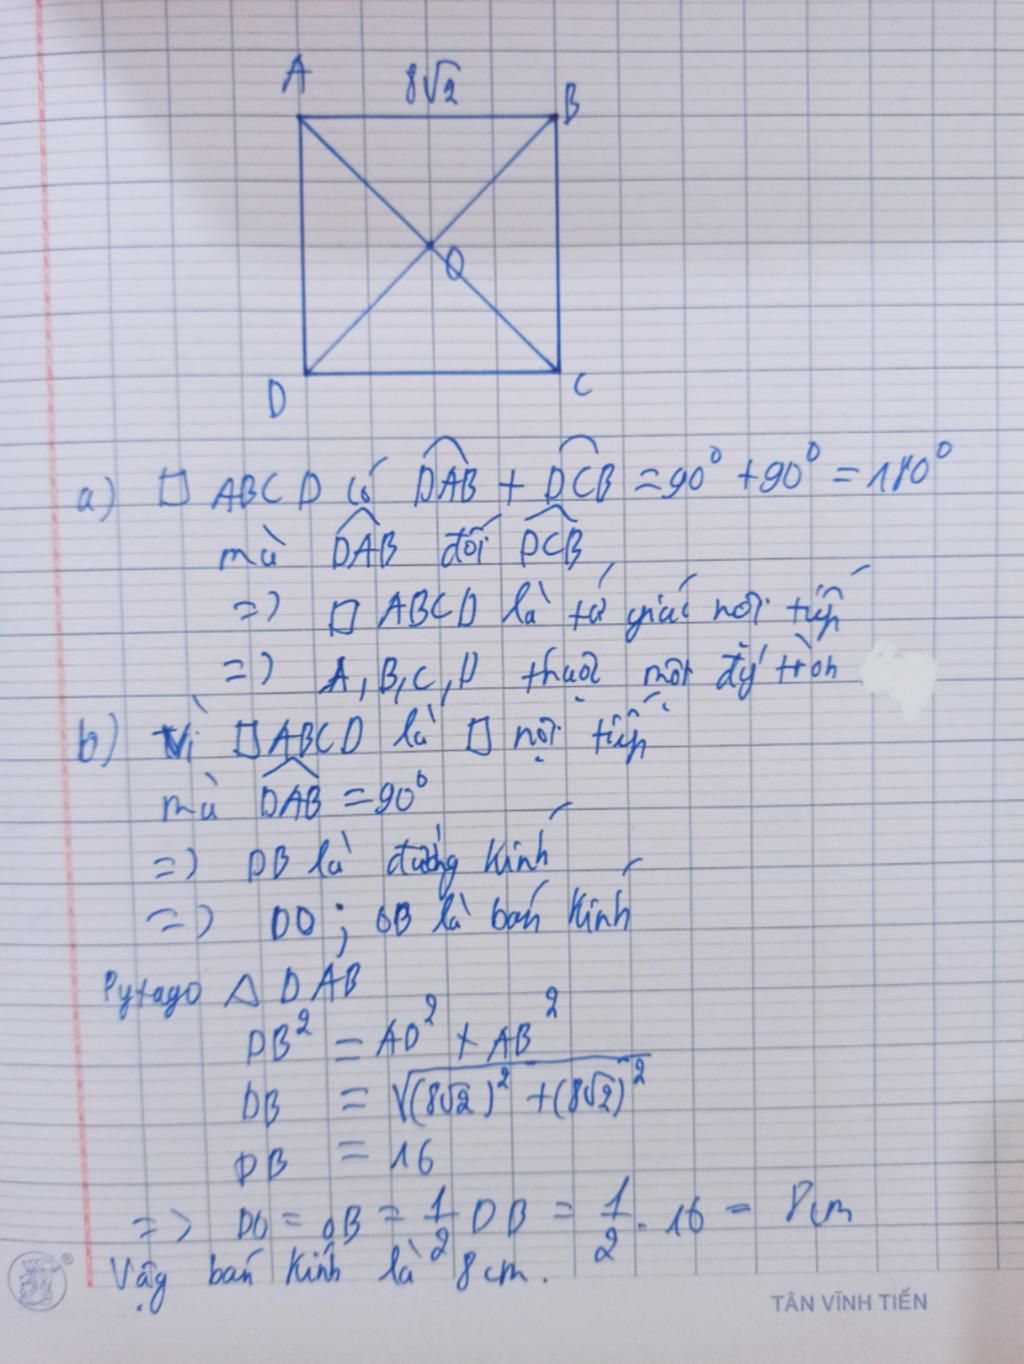 A 8√2 B
O
D C
a) □ ABCD có DAB + DCB = 90° + 90° = 180°
mà DAB đối DCB
=> □ ABCD là tứ giác nội tiếp
=> A, B, C, D thuộc một đg tròn
b) Vì □ ABCD là □ nội tiếp
mà DAB = 90°
=> DB là đường kính
=> DO ; OB là bán kính
Pytago △ DAB
DB² = AD² + AB²
DB = √((8√2)² + (8√2)²)
DB = 16
=> DO = OB = 1/2 DB = 1/2 . 16 = 8cm
Vậy bán kính là 8cm.
TÂN VĨNH TIẾN